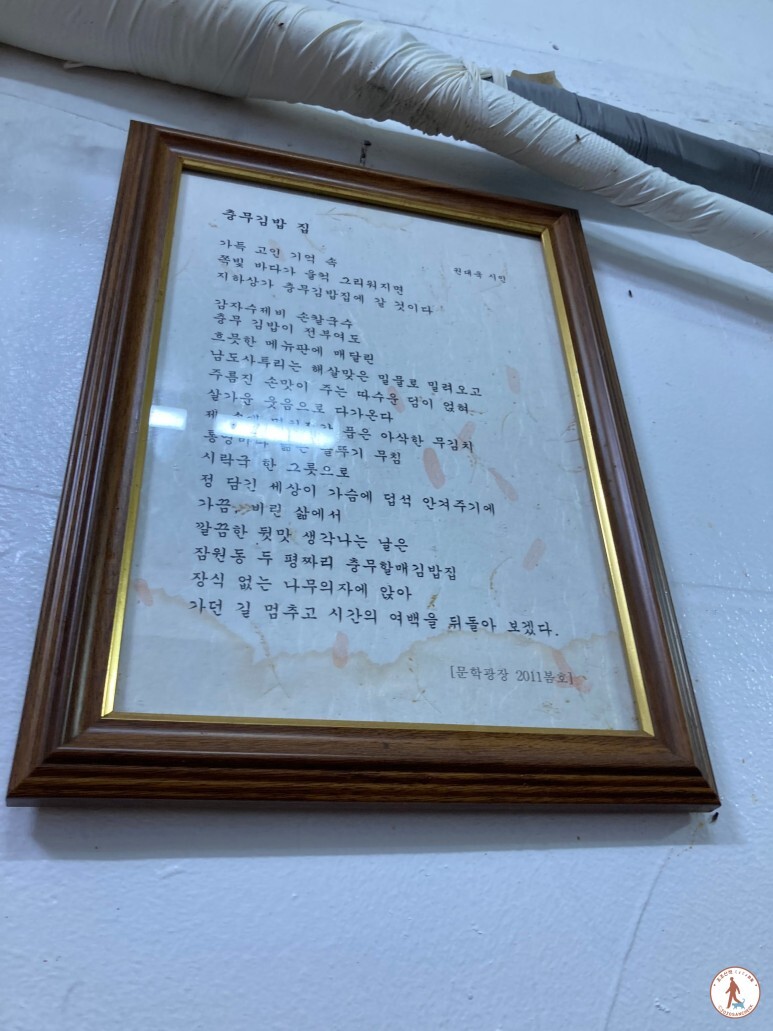 충무김밥 집
시인
가득 고인 기억 속
쪽빛 바다가 울컥 그리워지면
지하상가 충무김밥집에 갈 것이다
감자수제비 손칼국수
충무 김밥이 전부여도
흐뭇한 메뉴판에 매달린
남도사투리는 해살맞은 밀물로 밀려오고
주름진 손맛이 주는 따수운 덤이 얹혀
살가운 웃음으로 다가온다
품은 아삭한 무김치
꼴뚜기 무침
시락국 한 그릇으로
정 담긴 세상이 가슴에 덥석 안겨주기에
가끔 비린 삶에서
깔끔한 뒷맛 생각나는 날은
잠원동 두 평짜리 충무할매김밥집
장식 없는 나무의자에 앉아
가던 길 멈추고 시간의 여백을 뒤돌아 보겠다.
[문학광장 2011봄호]